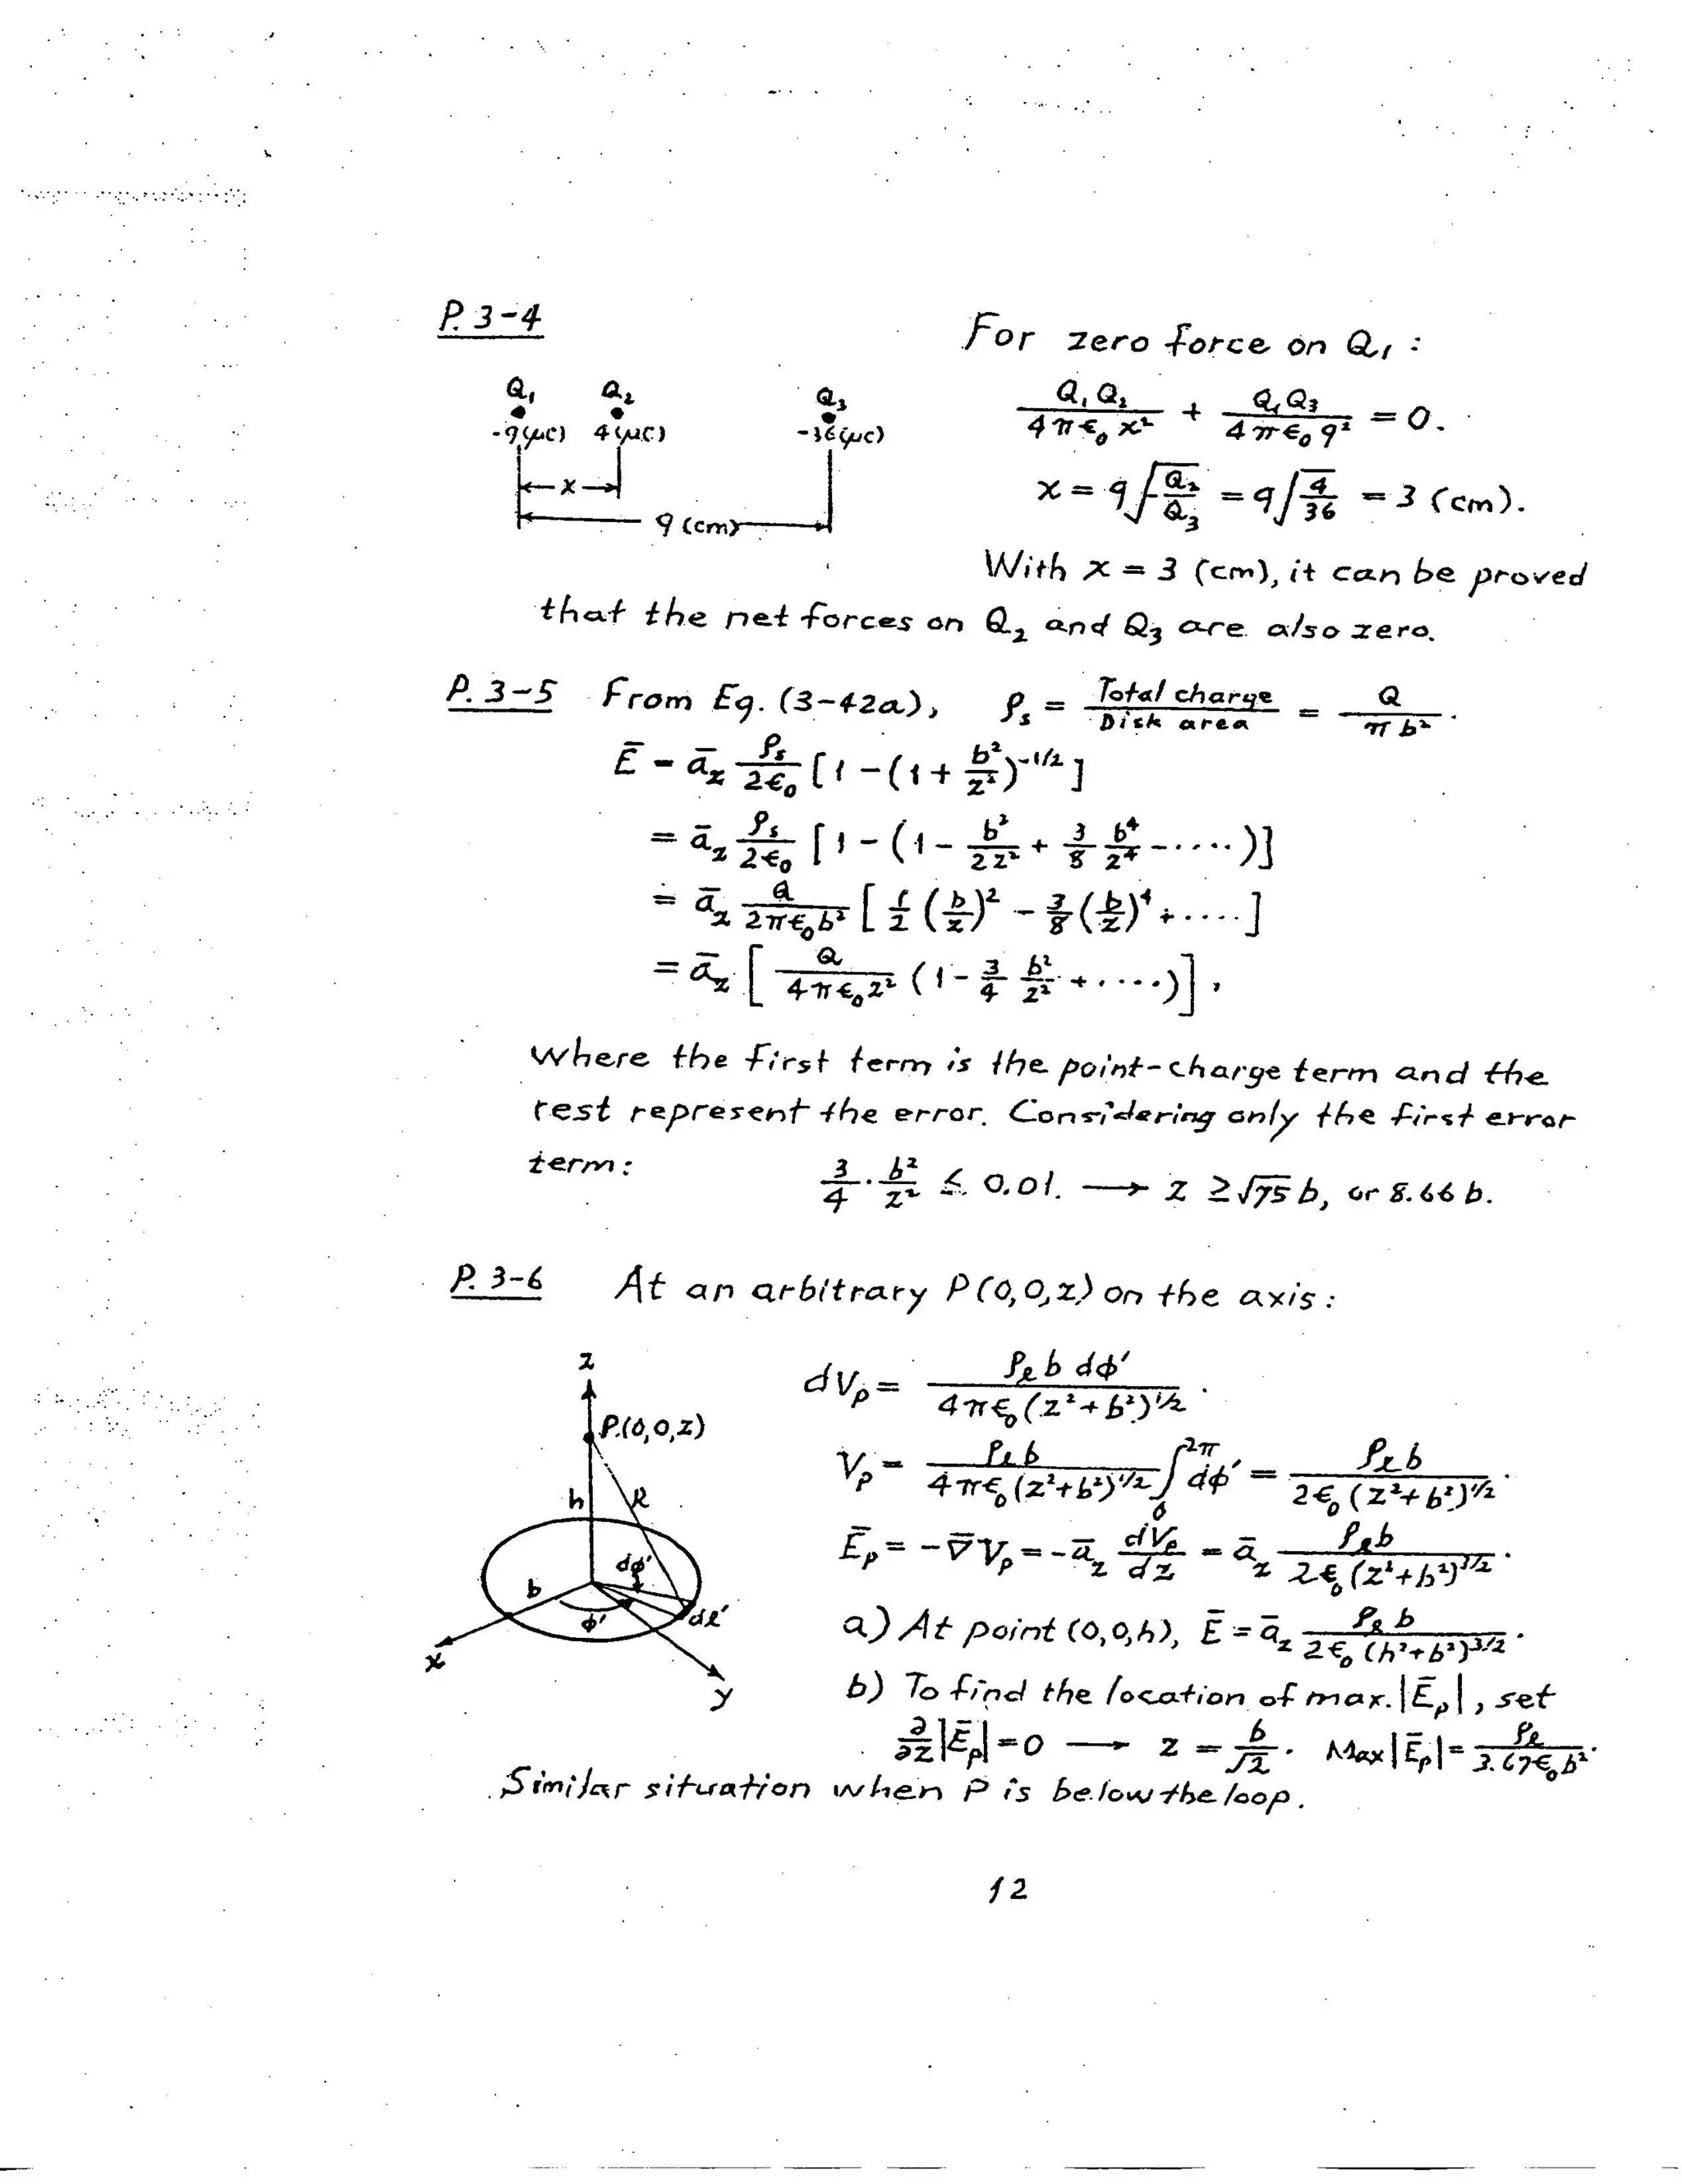 P. 3-4
For zero force on Q₁ :
Q₁ Q₂ Q₃
-9(μC) 4(μC) -36(μC)
x
9 (cm)
Q₁Q₂/(4πε₀x²) + Q₁Q₃/(4πε₀9²) = 0.
x = 9√(-Q₂/Q₃) = 9√(4/36) = 3 (cm).
With x = 3 (cm), it can be proved
that the net forces on Q₂ and Q₃ are also zero.
P. 3-5 From Eq. (3-42a), ρₛ = Total charge/Disk area = Q/(πb²).
Ē = ā_z ρₛ/(2ε₀) [1 - (1 + b²/z²)^(-1/2)]
= ā_z ρₛ/(2ε₀) [1 - (1 - b²/(2z²) + 3/8 b⁴/z⁴ - .....)]
= ā_z Q/(2πε₀b²) [1/2 (b/z)² - 3/8 (b/z)⁴ + ....]
= ā_z [Q/(4πε₀z²) (1 - 3/4 b²/z² + ....)] ,
where the first term is the point-charge term and the
rest represent the error. Considering only the first error
term: 3/4 · b²/z² ≤ 0.01. ⟶ z ≥ √75 b, or 8.66 b.
P. 3-6 At an arbitrary P(0,0,z) on the axis :
z
P.(0,0,z)
h R
dφ′
b
φ′ dℓ′
x
y
dV_p = ρ_ℓ b dφ′/(4πε₀(z²+b²)^(1/2)) .
V_p = ρ_ℓ b/(4πε₀(z²+b²)^(1/2)) ∫₀^(2π) dφ′ = ρ_ℓ b/(2ε₀(z²+b²)^(1/2)) .
Ē_p = -∇̄V_p = -ā_z dV_p/dz = ā_z ρ_ℓ b/(2ε₀(z²+b²)^(3/2)) .
a) At point (0,0,h), Ē = ā_z ρ_ℓ b/(2ε₀(h²+b²)^(3/2)) .
b) To find the location of max. |Ē_p| , set
∂/∂z |Ē_p| = 0 ⟶ z = b/√2 . Max |Ē_p| = ρ_ℓ/(3.67ε₀b²) .
Similar situation when P is below the loop .
12